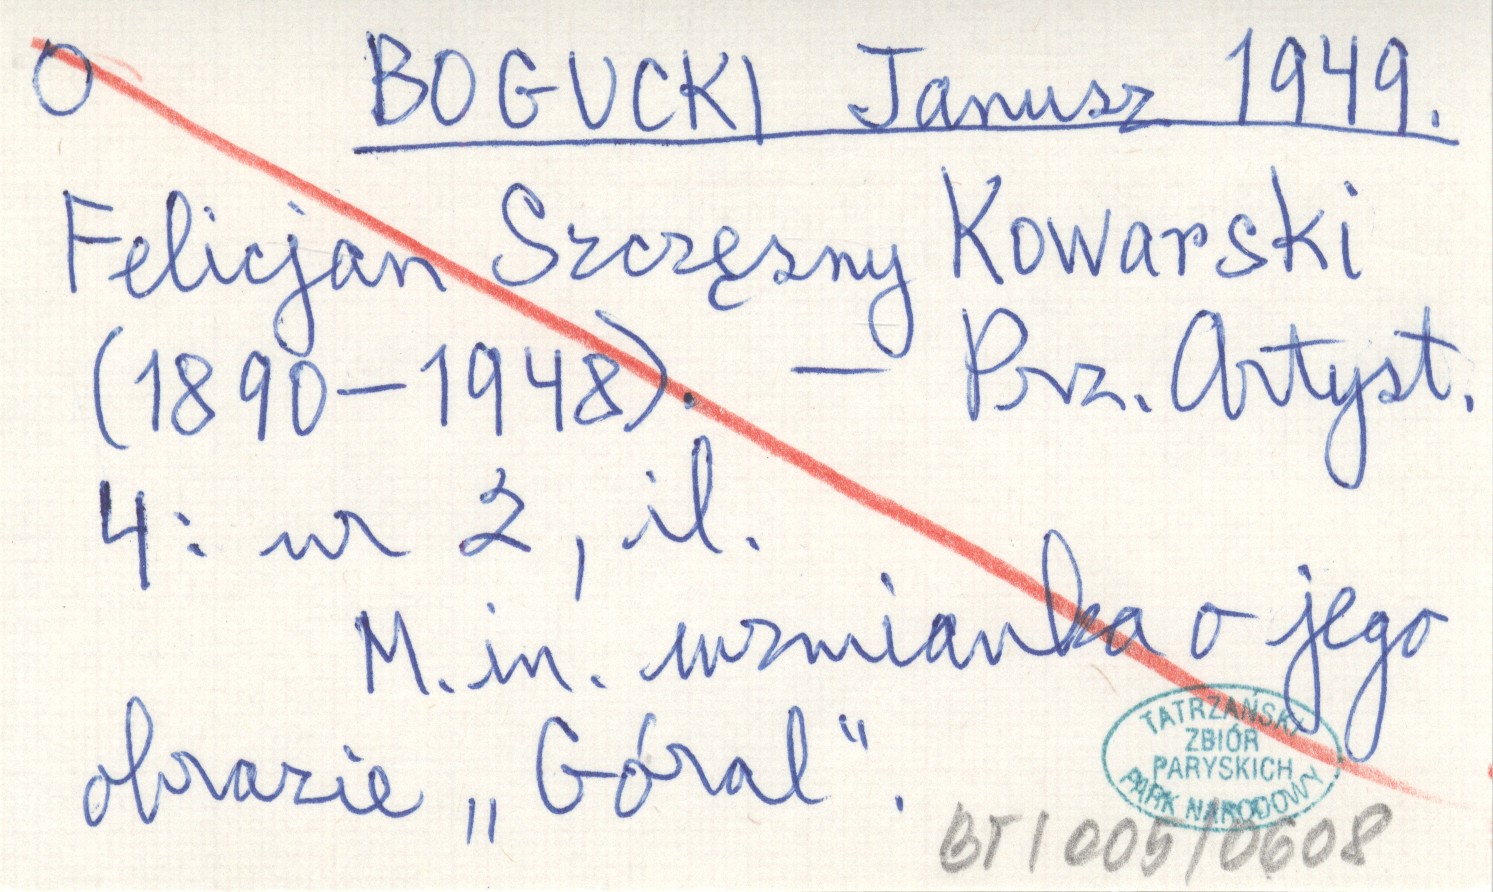 O BOGUCKI Janusz 1949.
Felicjan Szczęsny Kowarski
(1890–1948). — Prz. Artyst.
4: nr 2, il.
M.in. wzmianka o jego
obrazie „Góral".
TATRZAŃSKI
ZBIÓR
PARYSKICH
PARK NARODOWY
BT/005/0608